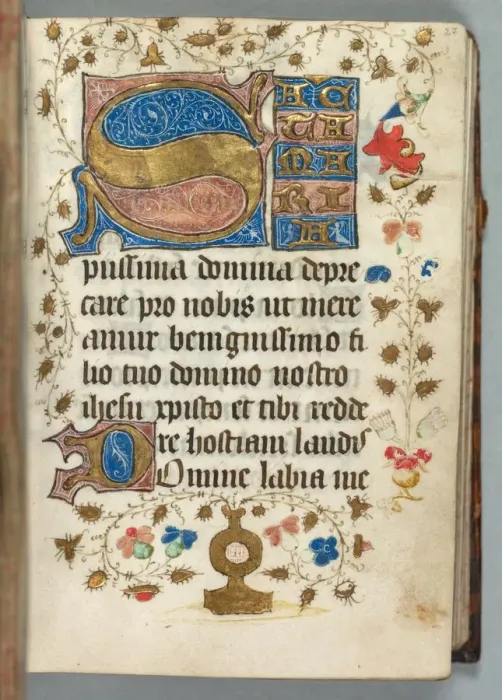 27
SAC
TA
MA
RI
A
piissima domina depre
care pro nobis ut mere
amur benignissimo fi
lio tuo domino nostro
ihesu xpisto et tibi redde
re hostiam laudis
Domine labia me